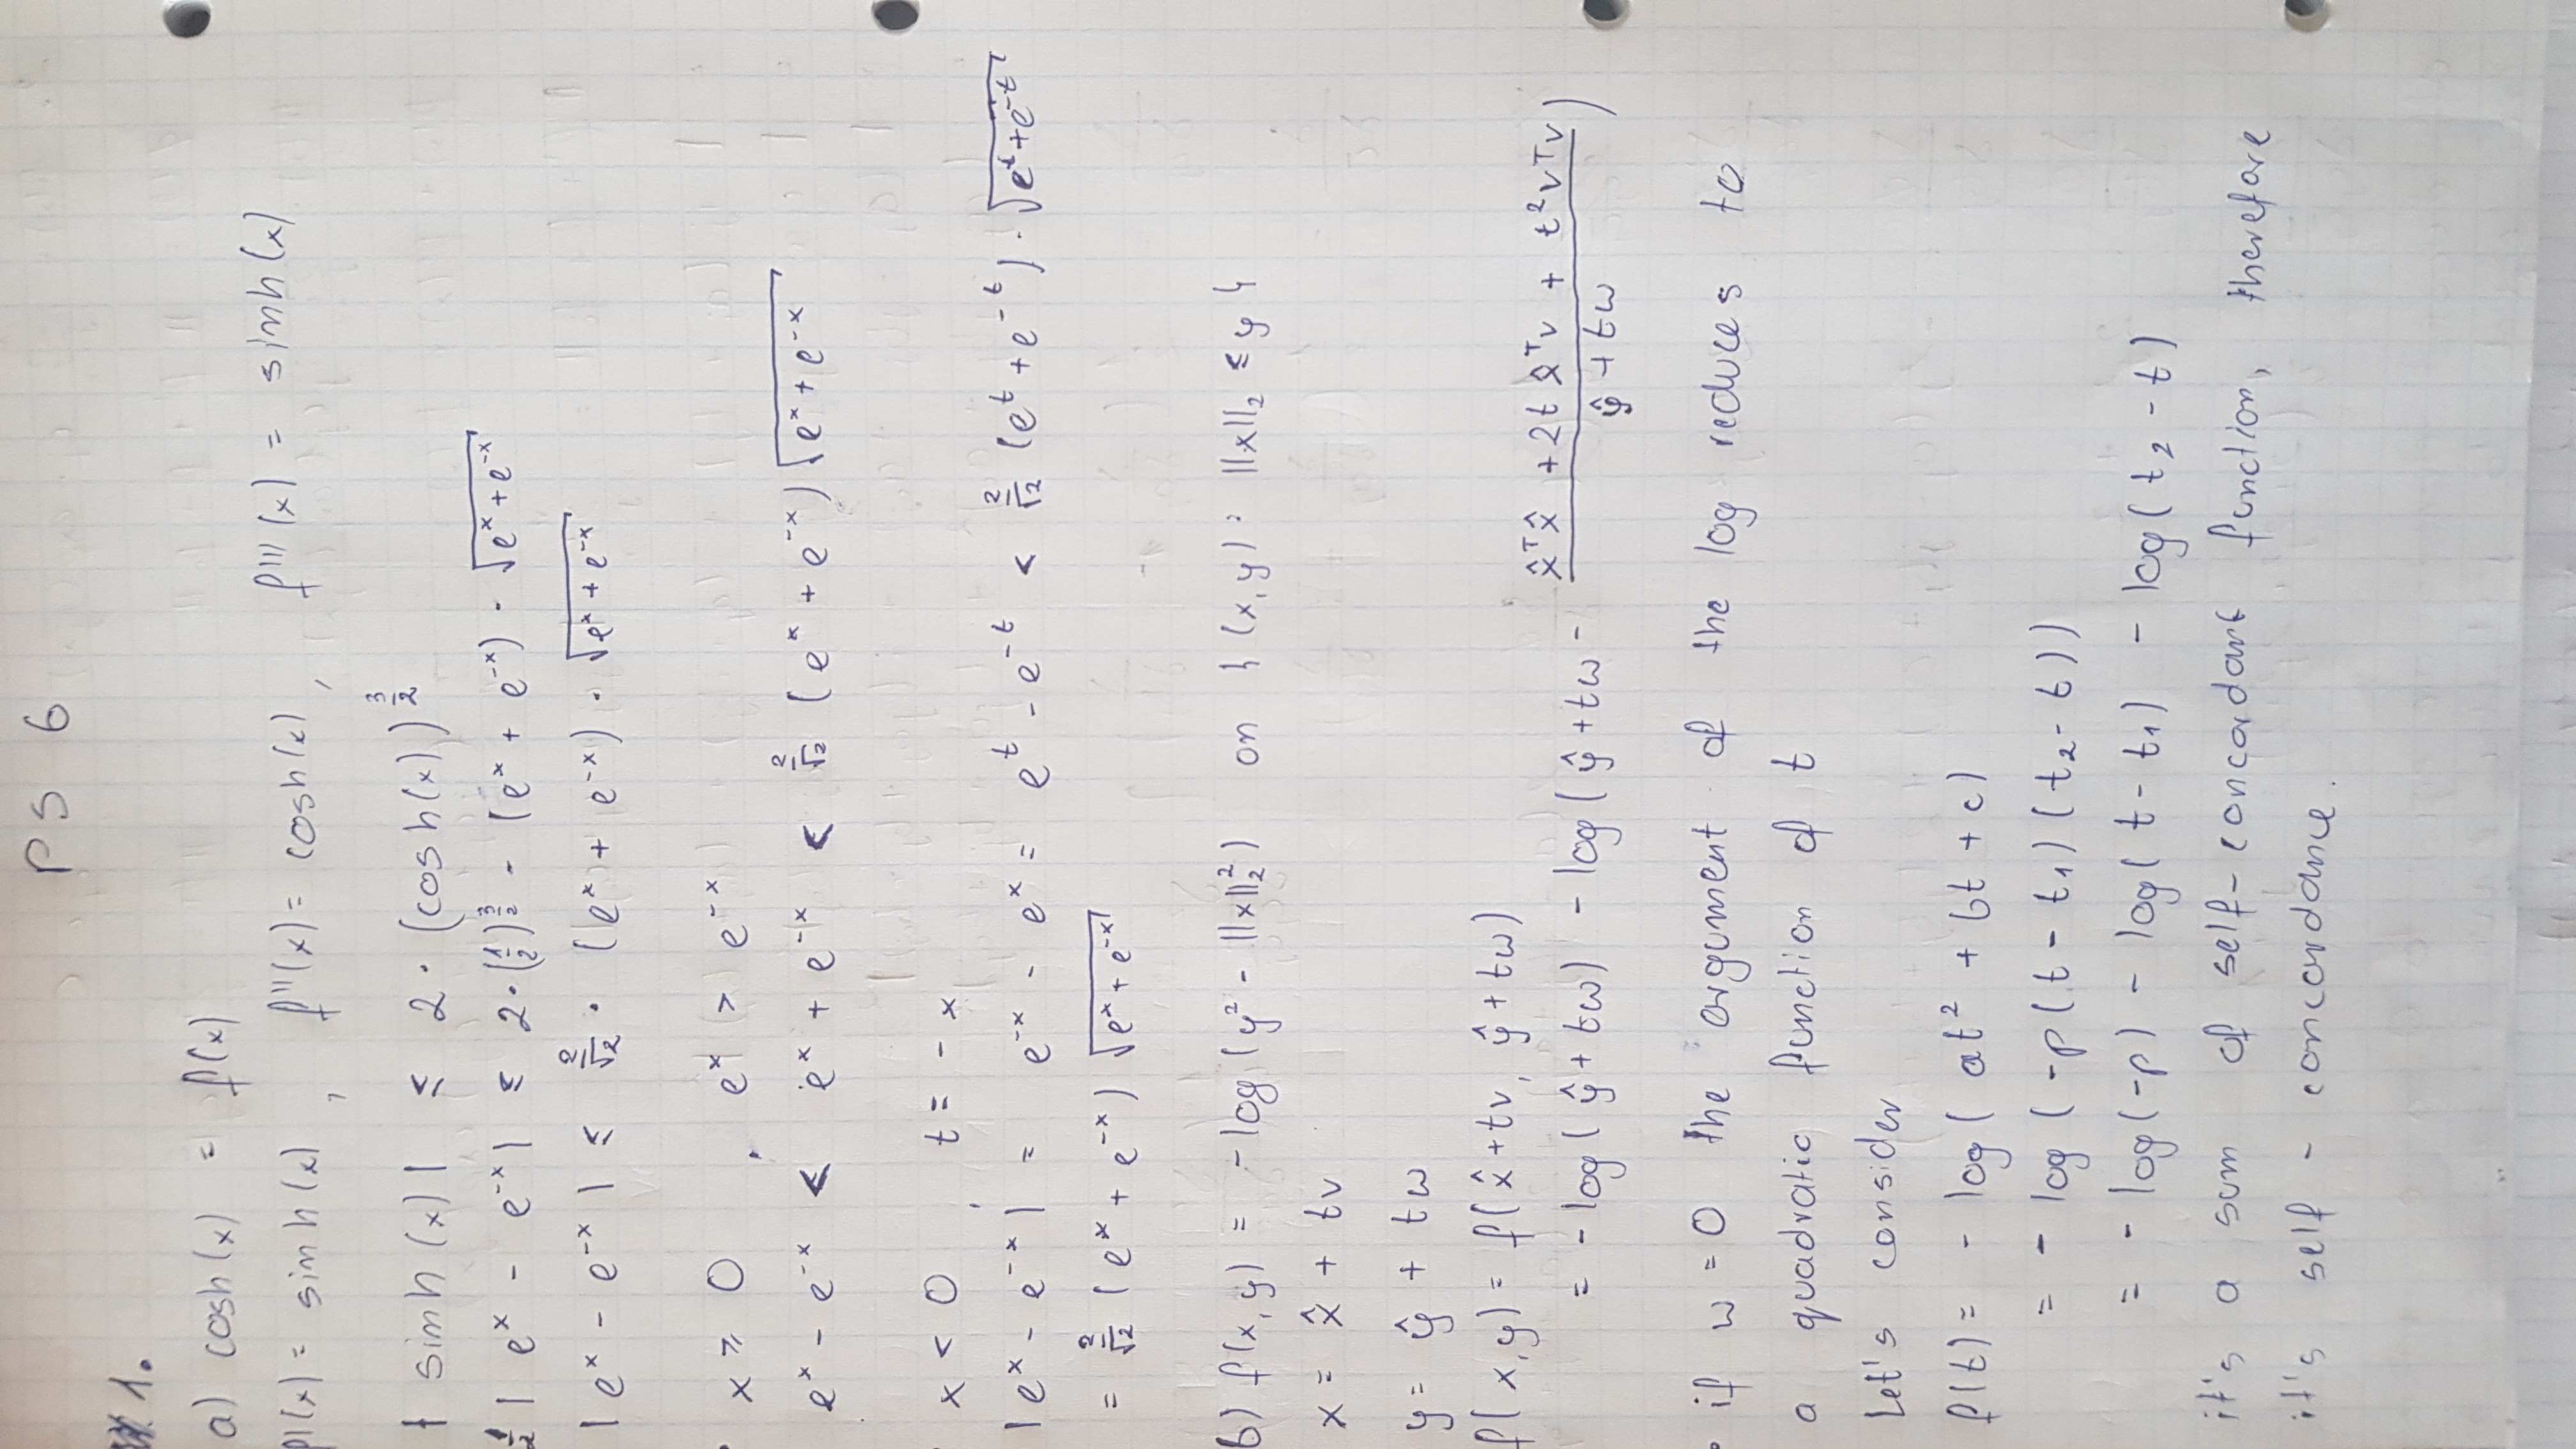 PS 6
1.
a) cosh(x) = f(x)
f'(x) = sinh(x) , f''(x) = cosh(x) , f'''(x) = sinh(x)
| sinh(x)| ≤ 2 · (cosh(x))^{3/2}
1/2 | e^x - e^{-x} | ≤ 2·(1/2)^{3/2} · (e^x + e^{-x}) · √(e^x + e^{-x})
|e^x - e^{-x}| ≤ 2/√2 · (e^x + e^{-x}) · √(e^x + e^{-x})
• x ≥ 0 , e^x > e^{-x}
e^x - e^{-x} < e^x + e^{-x} < 2/√2 (e^x + e^{-x}) √(e^x + e^{-x})
• x < 0 , t = - x
|e^x - e^{-x}| = e^{-x} - e^x = e^t - e^{-t} < 2/√2 (e^t + e^{-t}) · √(e^t + e^{-t})
= 2/√2 (e^x + e^{-x}) √(e^x + e^{-x})
b) f(x,y) = -log(y² - ||x||₂²) on {(x,y) : ||x||₂ ≤ y}
x = x̂ + tv
y = ŷ + tw
f(x,y) = f(x̂ + tv, ŷ + tw)
= -log(ŷ + tw) - log(ŷ + tw - (x̂ᵀx̂ + 2t x̂ᵀv + t²vᵀv)/(ŷ + tw))
• if w = 0 the argument of the log reduces to
a quadratic function of t
Let's consider
f(t) = - log( at² + bt + c)
= - log (-p(t - t₁)(t₂ - t))
= - log(-p) - log(t - t₁) - log(t₂ - t)
it's a sum of self-concordant function, therefore
it's self - concordance.